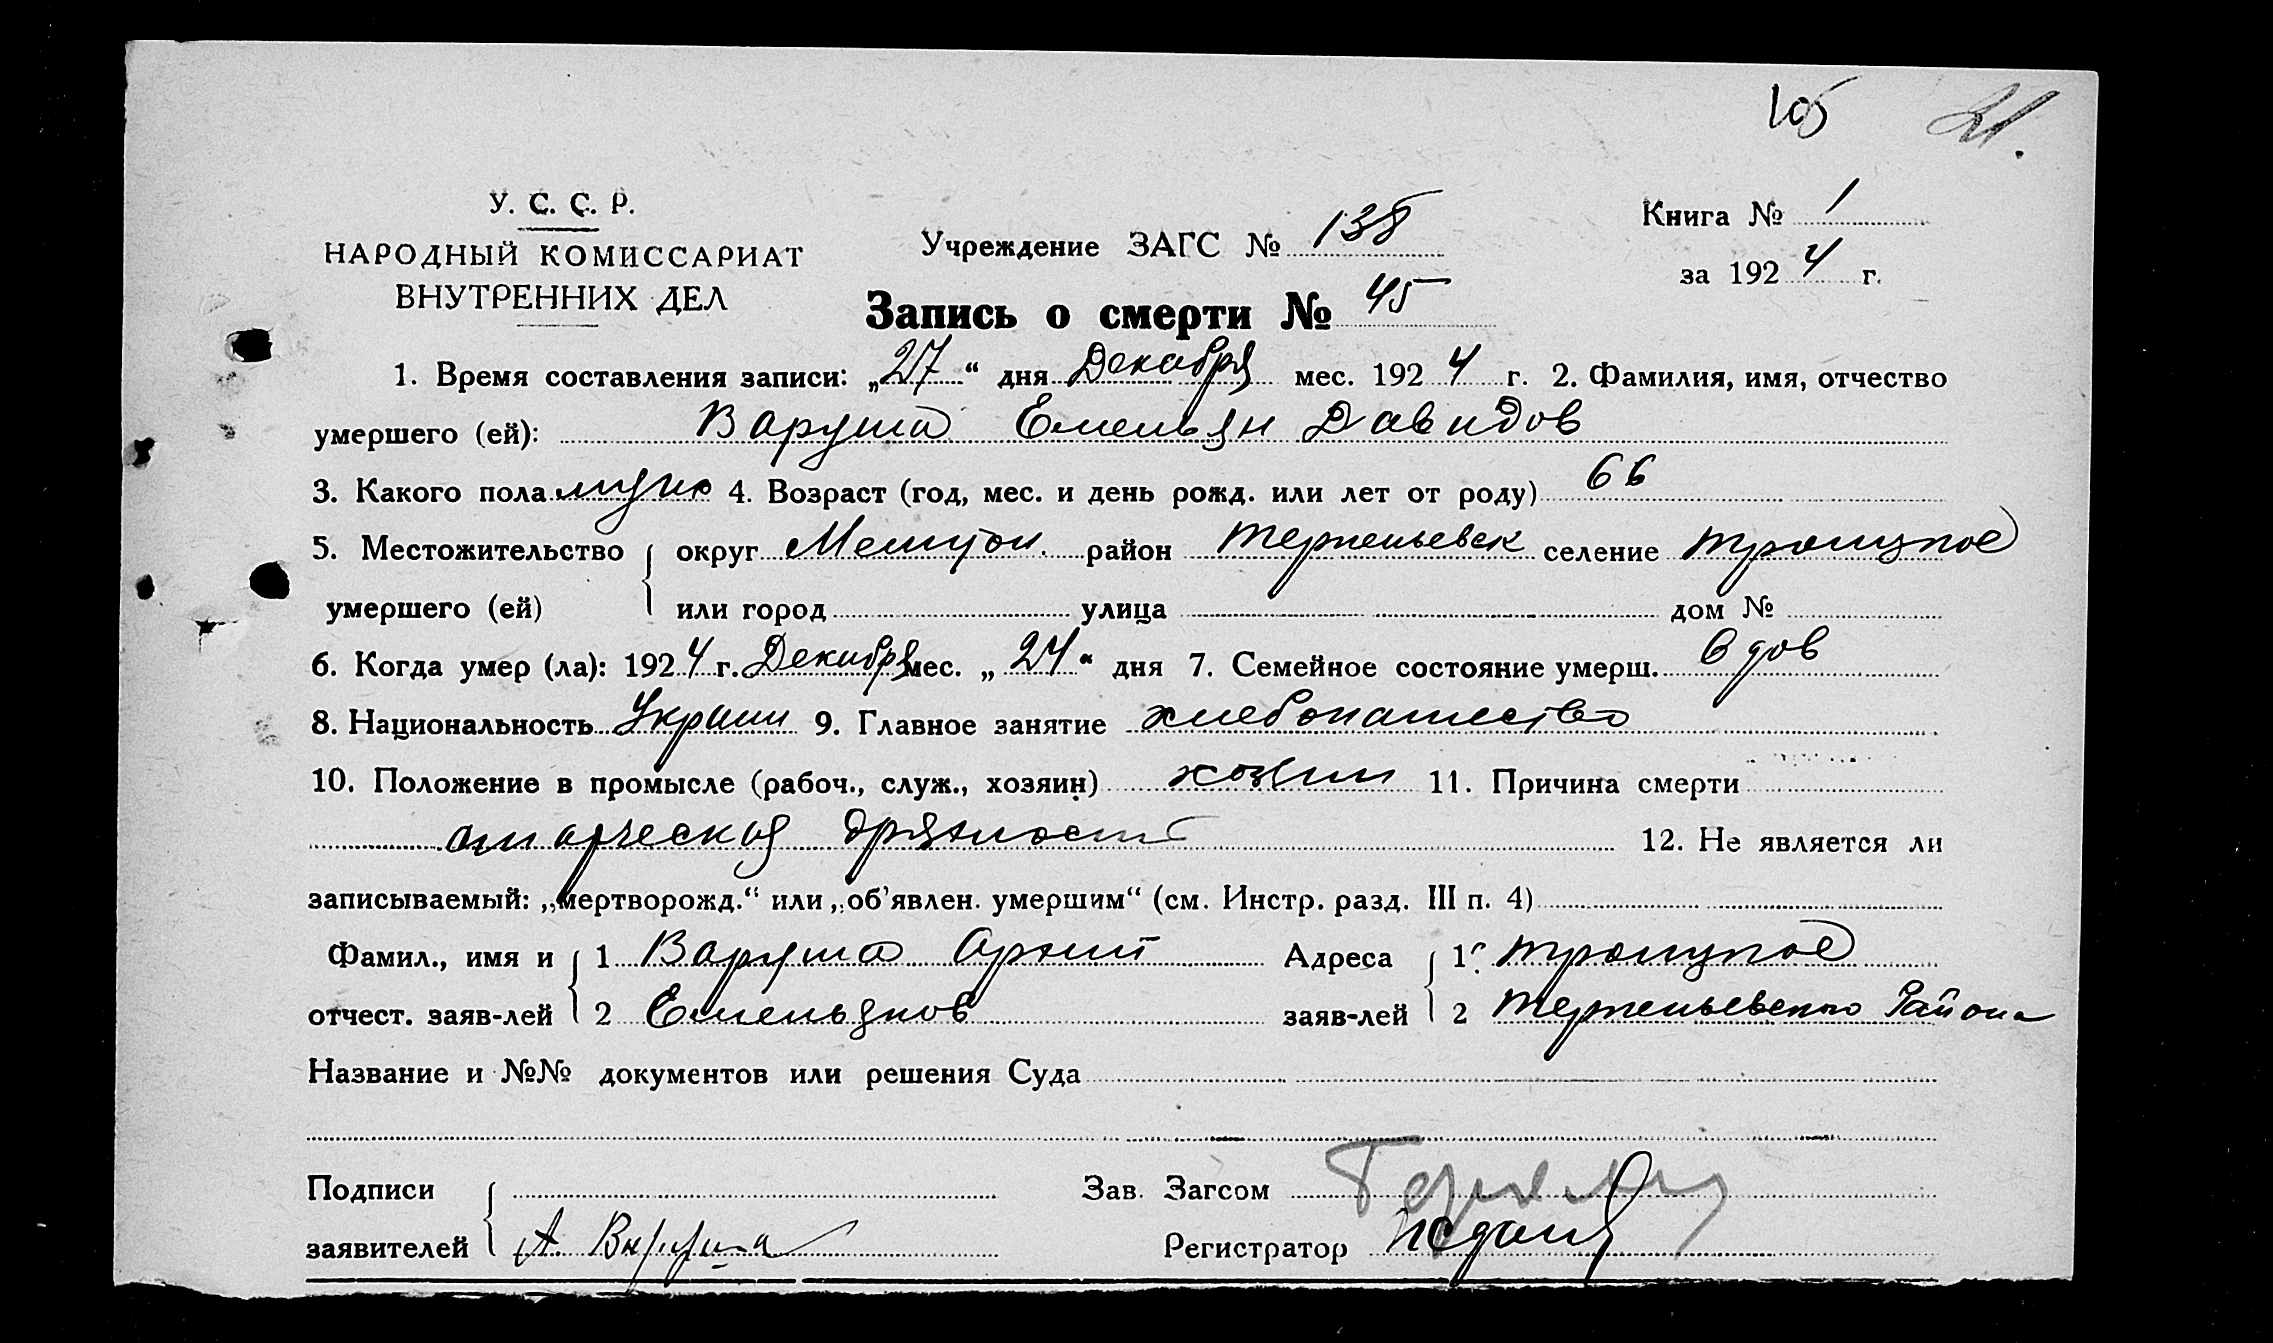 105 21.
У. С. С. Р.
НАРОДНЫЙ КОМИССАРИАТ
ВНУТРЕННИХ ДЕЛ
Учреждение ЗАГС № 138
Книга № 1
за 1924 г.
Запись о смерти № 45
1. Время составления записи: „27“ дня Декабря мес. 1924 г. 2. Фамилия, имя, отчество
умершего (ей): Варуша Емельян Давидов
3. Какого пола муж 4. Возраст (год, мес. и день рожд. или лет от роду) 66
5. Местожительство округ Мелитоп. район Терпеньевск селение Троицкое
умершего (ей) или город улица дом №
6. Когда умер (ла): 1924 г. Декабря мес. „24“ дня 7. Семейное состояние умерш. вдов
8. Национальность Украин 9. Главное занятие хлебопашество
10. Положение в промысле (рабоч., служ., хозяин) хозяин 11. Причина смерти
старческая дряхлость 12. Не является ли
записываемый: „мертворожд.“ или „об’явлен. умершим“ (см. Инстр. разд. III п. 4)
Фамил., имя и 1 Варуша Архип Адреса 1 Троицкое
отчест. заяв-лей 2 Емельянов заяв-лей 2 Терпеньевского Района
Название и №№ документов или решения Суда
Подписи Зав. Загсом
заявителей А. Варуша Регистратор